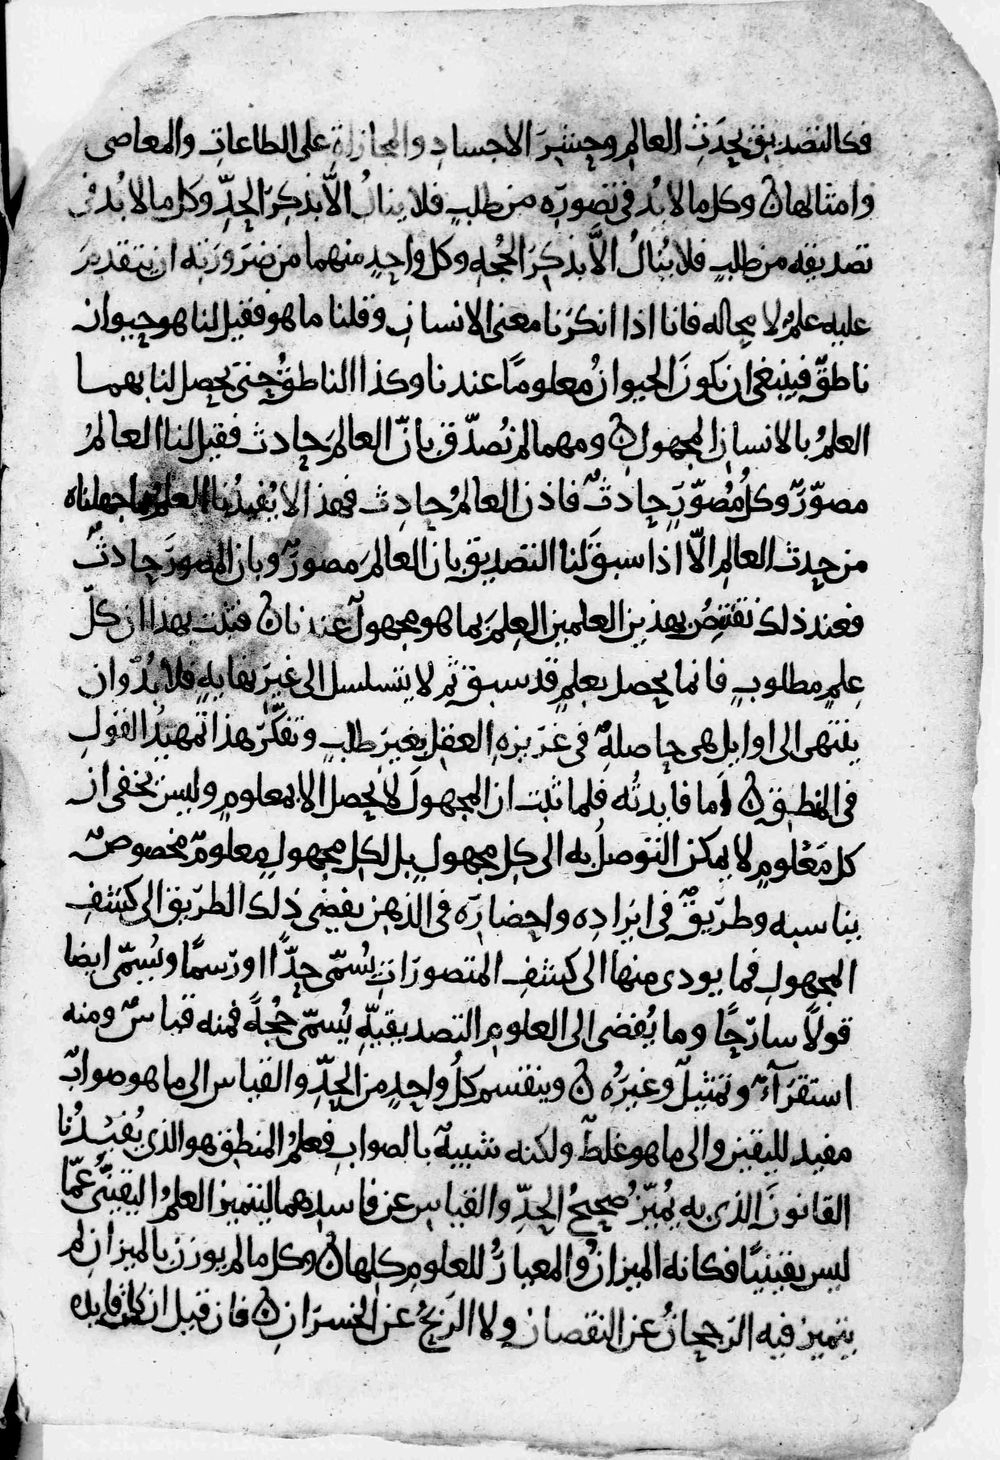 فكالتصديق بحدث العالم وحشر الاجساد والمجازاة على الطاعات والمعاصي
وامثالها ن وكل ما لا بد في تصوره من طلب فلا ينال الا بذكر الحد وكل ما لا بد في
تصديقه من طلب فلا ينال الا بذكر الحجه وكل واحد منهما من ضرورته ان يتقدم
عليه علم لا محاله فانا اذا انكرنا معنى الانسان وقلنا ما هو فقيل لنا هو حيوان
ناطق فينبغي ان يكون الحيوان معلوما عندنا وكذا الناطق حتى يحصل لنا بهما
العلم بالانسان المجهول ن ومهما لم نصدق بان العالم حادث فقيل لنا العالم
مصور وكل مصور حادث فاذن العالم حادث فهذا لا يفيدنا العلم بما جهلناه
من حدث العالم الا اذا سبق لنا التصديق بان العالم مصور وبان المصور حادث
فعند ذلك نقتنص بهذين العلمين العلم بما هو مجهول عندنا ن فثبت بهذا ان كل
علم مطلوب فانما يحصل بعلم قد سبق ثم لا يتسلسل الى غير نهايه فلا بد وان
ينتهى الى اوايل هي حاصله في غريزه العقل بغير طلب وتفكر هذا تمهيد القول
في المنطق ن اما فايدته فلما ثبت ان المجهول لا يحصل الا بمعلوم وليس يخفى ان
كل معلوم لا يمكن التوصل به الى كل مجهول بل لكل مجهول معلوم مخصوص
يناسبه وطريق في ايراده واحضاره في الذهن يفضي ذلك الطريق الى كشف
المجهول فما يودى منها الى كشف المتصورات يسمى حدا او رسما ويسمى ايضا
قولا شارحا وما يفضى الى العلوم التصديقيه يسمى حجة فمنه قياس ومنه
استقرآء وتمثيل وغيره ن وينقسم كل واحد من الحد والقياس الى ما هو صواب
مفيد لليقين والى ما هو غلط ولكنه شبيه بالصواب فعلم المنطق هو الذي يفيدنا
القانون الذي به يميز صحيح الحد والقياس عن فاسدهما ليتميز العلم اليقينى عما
ليس يقينيا فكانه الميزان والمعيار للعلوم كلها ن وكل ما لم يوزن بالميزان لم
يتميز فيه الرجحان عن النقصان ولا الربح عن الخسران ن فان قيل ان كان فايده